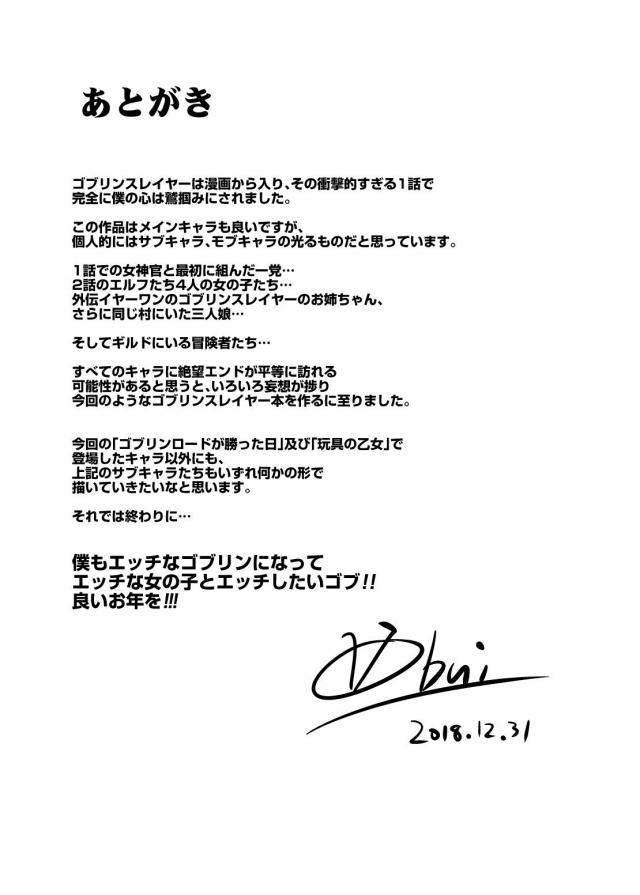 あとがき
ゴブリンスレイヤーは漫画から入り、その衝撃的すぎる1話で
完全に僕の心は鷲掴みにされました。
この作品はメインキャラも良いですが、
個人的にはサブキャラ、モブキャラの光るものだと思っています。
1話での女神官と最初に組んだ一党…
2話のエルフたち4人の女の子たち…
外伝イヤーワンのゴブリンスレイヤーのお姉ちゃん、
さらに同じ村にいた三人娘…
そしてギルドにいる冒険者たち…
すべてのキャラに絶望エンドが平等に訪れる
可能性があると思うと、いろいろ妄想が捗り
今回のようなゴブリンスレイヤー本を作るに至りました。
今回の「ゴブリンロードが勝った日」及び「玩具の乙女」で
登場したキャラ以外にも、
上記のサブキャラたちもいずれ何かの形で
描いていきたいなと思います。
それでは終わりに…
僕もエッチなゴブリンになって
エッチな女の子とエッチしたいゴブ!!
良いお年を!!!
やbui
2018.12.31